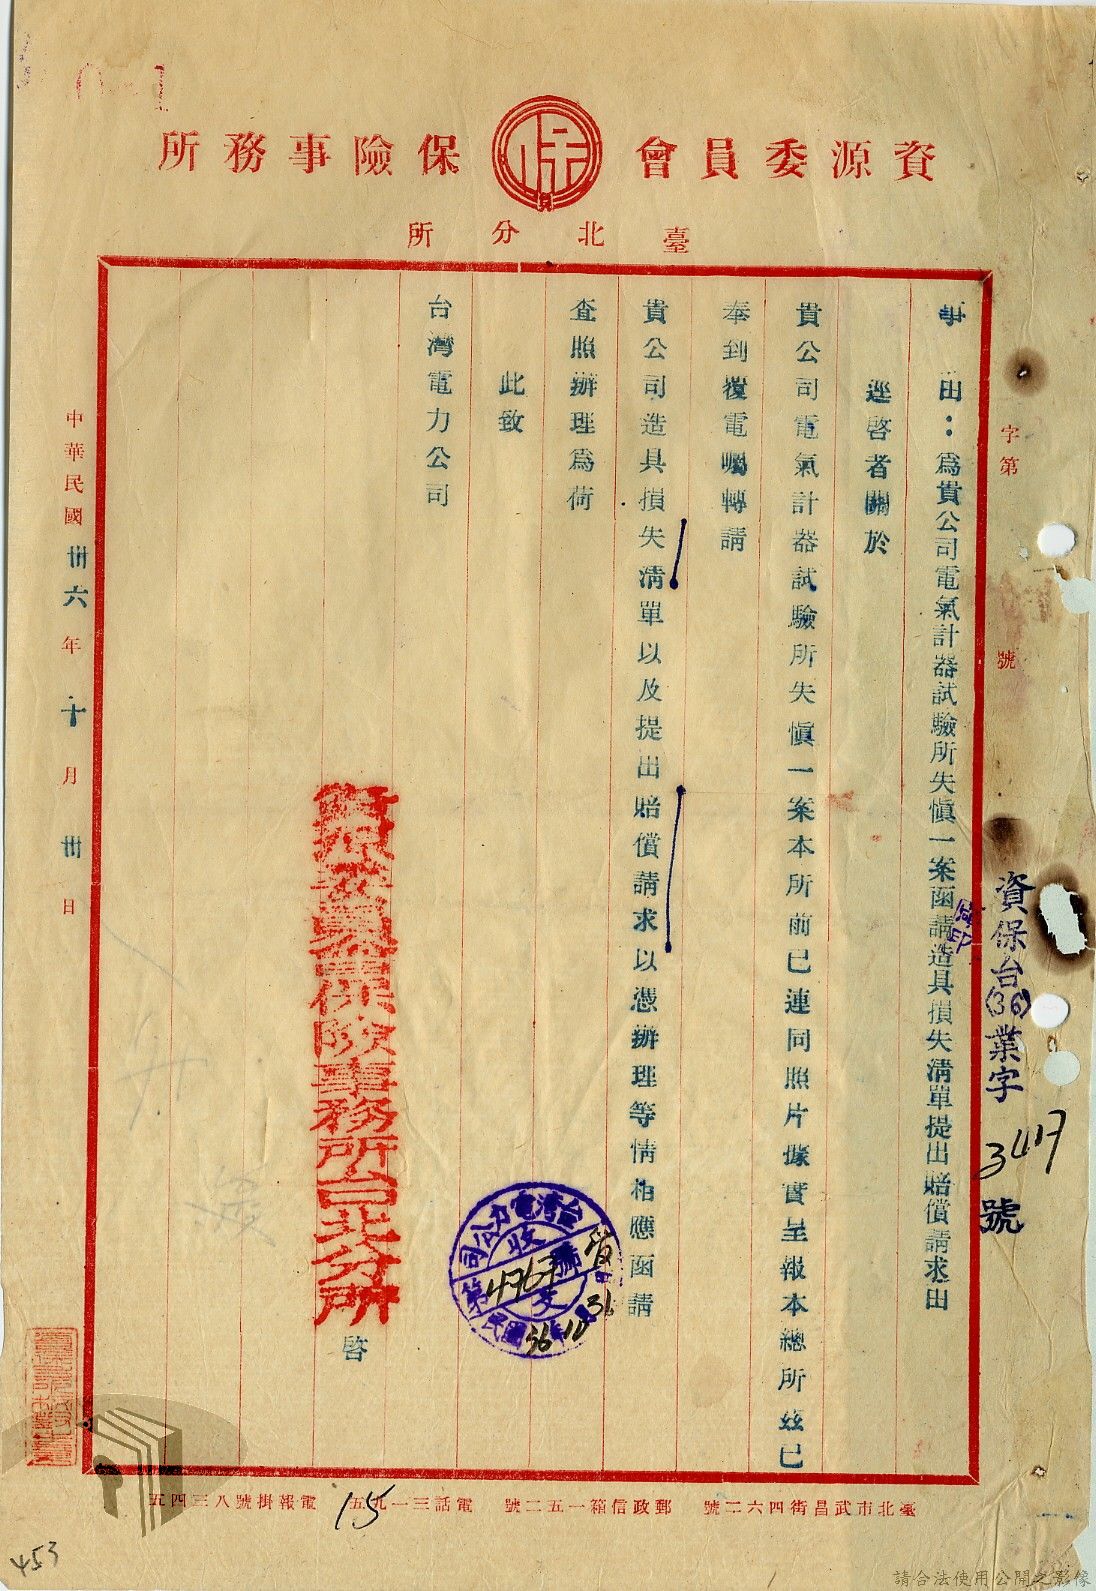 資源委員會保險事務所
臺北分所
字第 號
資保台(36)業字 3417 號
事由：為貴公司電氣計器試驗所失慎一案函請造具損失清單提出賠償請求由
逕啓者關於
貴公司電氣計器試驗所失慎一案本所前已連同照片據實呈報本總所茲已
奉到復電囑轉請
貴公司造具損失清單以及提出賠償請求以憑辦理等情相應函請
查照辦理為荷
此致
台灣電力公司
資源委員會保險事務所台北分所
啓
中華民國卅六年十月卅日
台灣電力公司
收文
第4767號
民國36年10月31日
臺北市武昌街四六二號 郵政信箱一五二號 電話三一九五 電報掛號八三四五
15
453
請合法使用公開之影像